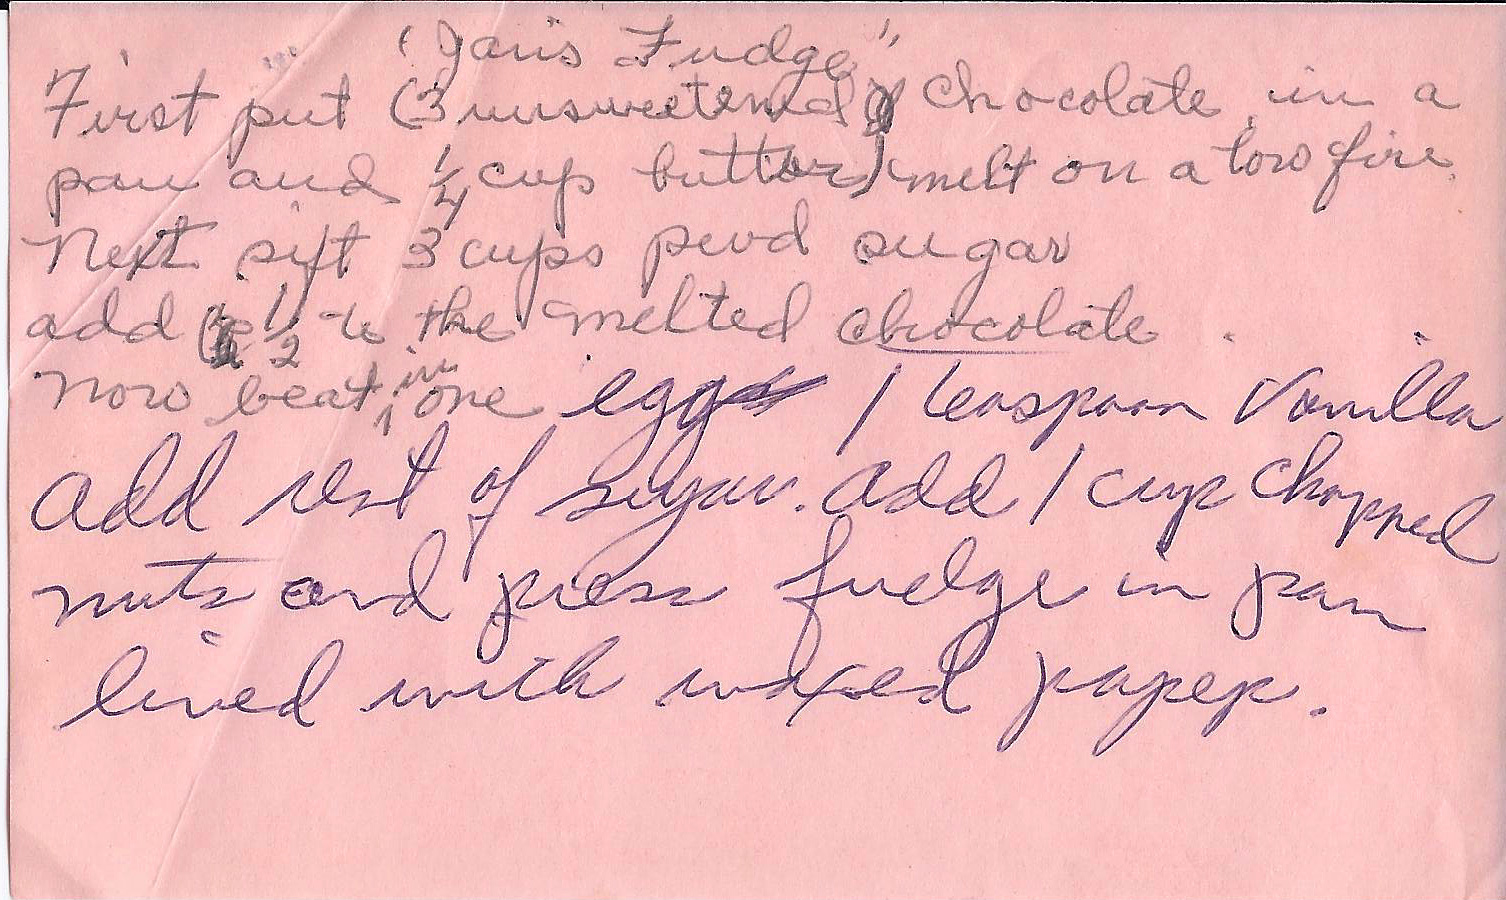 "Jan's Fudge"
First put (3 unsweetened) chocolate in a
pan and 1/4 cup butter) melt on a low fire.
Next sift 3 cups powd sugar
add 1/2 to the melted chocolate.
Now beat in one egg 1 teaspoon Vanilla
add rest of sugar. add 1 cup chopped
nuts and press fudge in pan
lined with waxed paper.